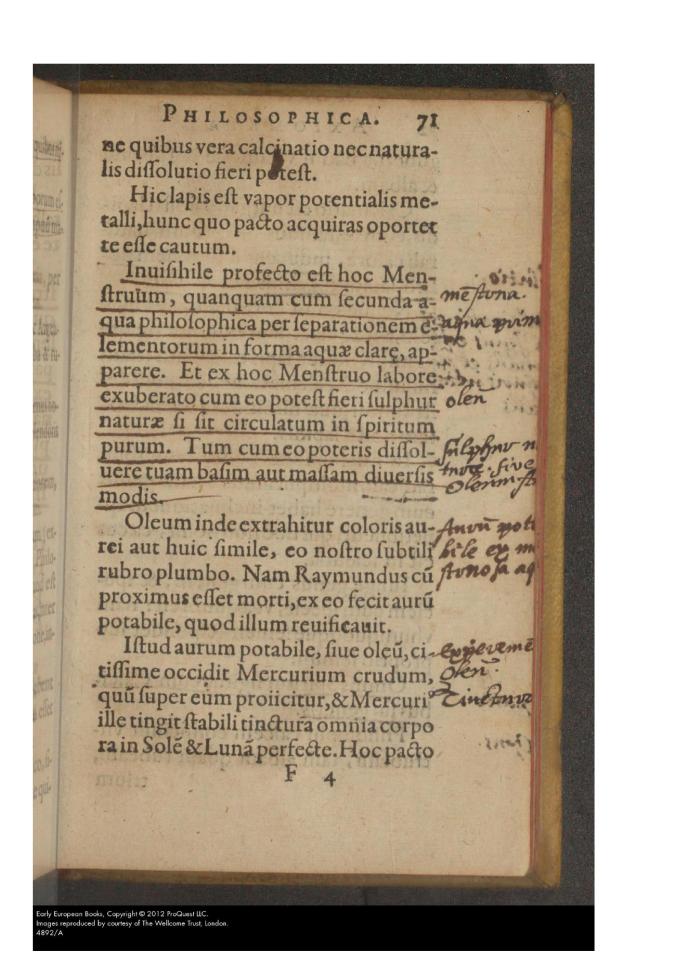 PHILOSOPHICA. 71
ne quibus vera calcinatio nec natura-
lis dissolutio fieri potest.
Hic lapis est vapor potentialis me-
talli, hunc quo pacto acquiras oportet
te esse cautum.
Inuisihile profecto est hoc Men-
struum, quanquam cum secunda a-
qua philosophica per separationem e-
lementorum in forma aquæ clarę, ap-
parere. Et ex hoc Menstruo labore
exuberato cum eo potest fieri sulphur
naturæ si sit circulatum in spiritum
purum. Tum cum eo poteris dissol-
uere tuam basim aut massam diuersis
modis.
Oleum inde extrahitur coloris au-
rei aut huic simile, eo nostro subtili
rubro plumbo. Nam Raymundus cū
proximus esset morti, ex eo fecit aurū
potabile, quod illum reuificauit.
Istud aurum potabile, siue oleū, ci-
tissime occidit Mercurium crudum,
quū super eum proiicitur, & Mercuri⁹
ille tingit stabili tinctura omnia corpo
ra in Solē & Lunā perfecte. Hoc pacto
F 4
aqua
olen
sive
Early European Books, Copyright © 2012 ProQuest LLC.
Images reproduced by courtesy of The Wellcome Trust, London.
4892/A